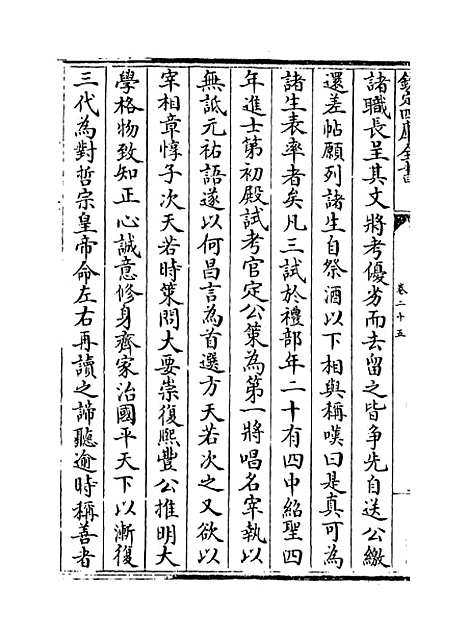 欽定四庫全書
卷二十五
諸職長呈其文將考優劣而去留之皆爭先自送公繳
還差帖願列諸生自祭酒以下相與稱嘆曰是真可為
諸生表率者矣凡三試於禮部年二十有四中紹聖四
年進士第初殿試考官定公策為第一將唱名宰執以
無詆元祐語遂以何昌言為首選方天若次之又欲以
宰相章惇子次天若時策問大要崇復熙豐公推明大
學格物致知正心誠意修身齊家治國平天下以漸復
三代為對哲宗皇帝命左右再讀之諦聽逾時稱善者